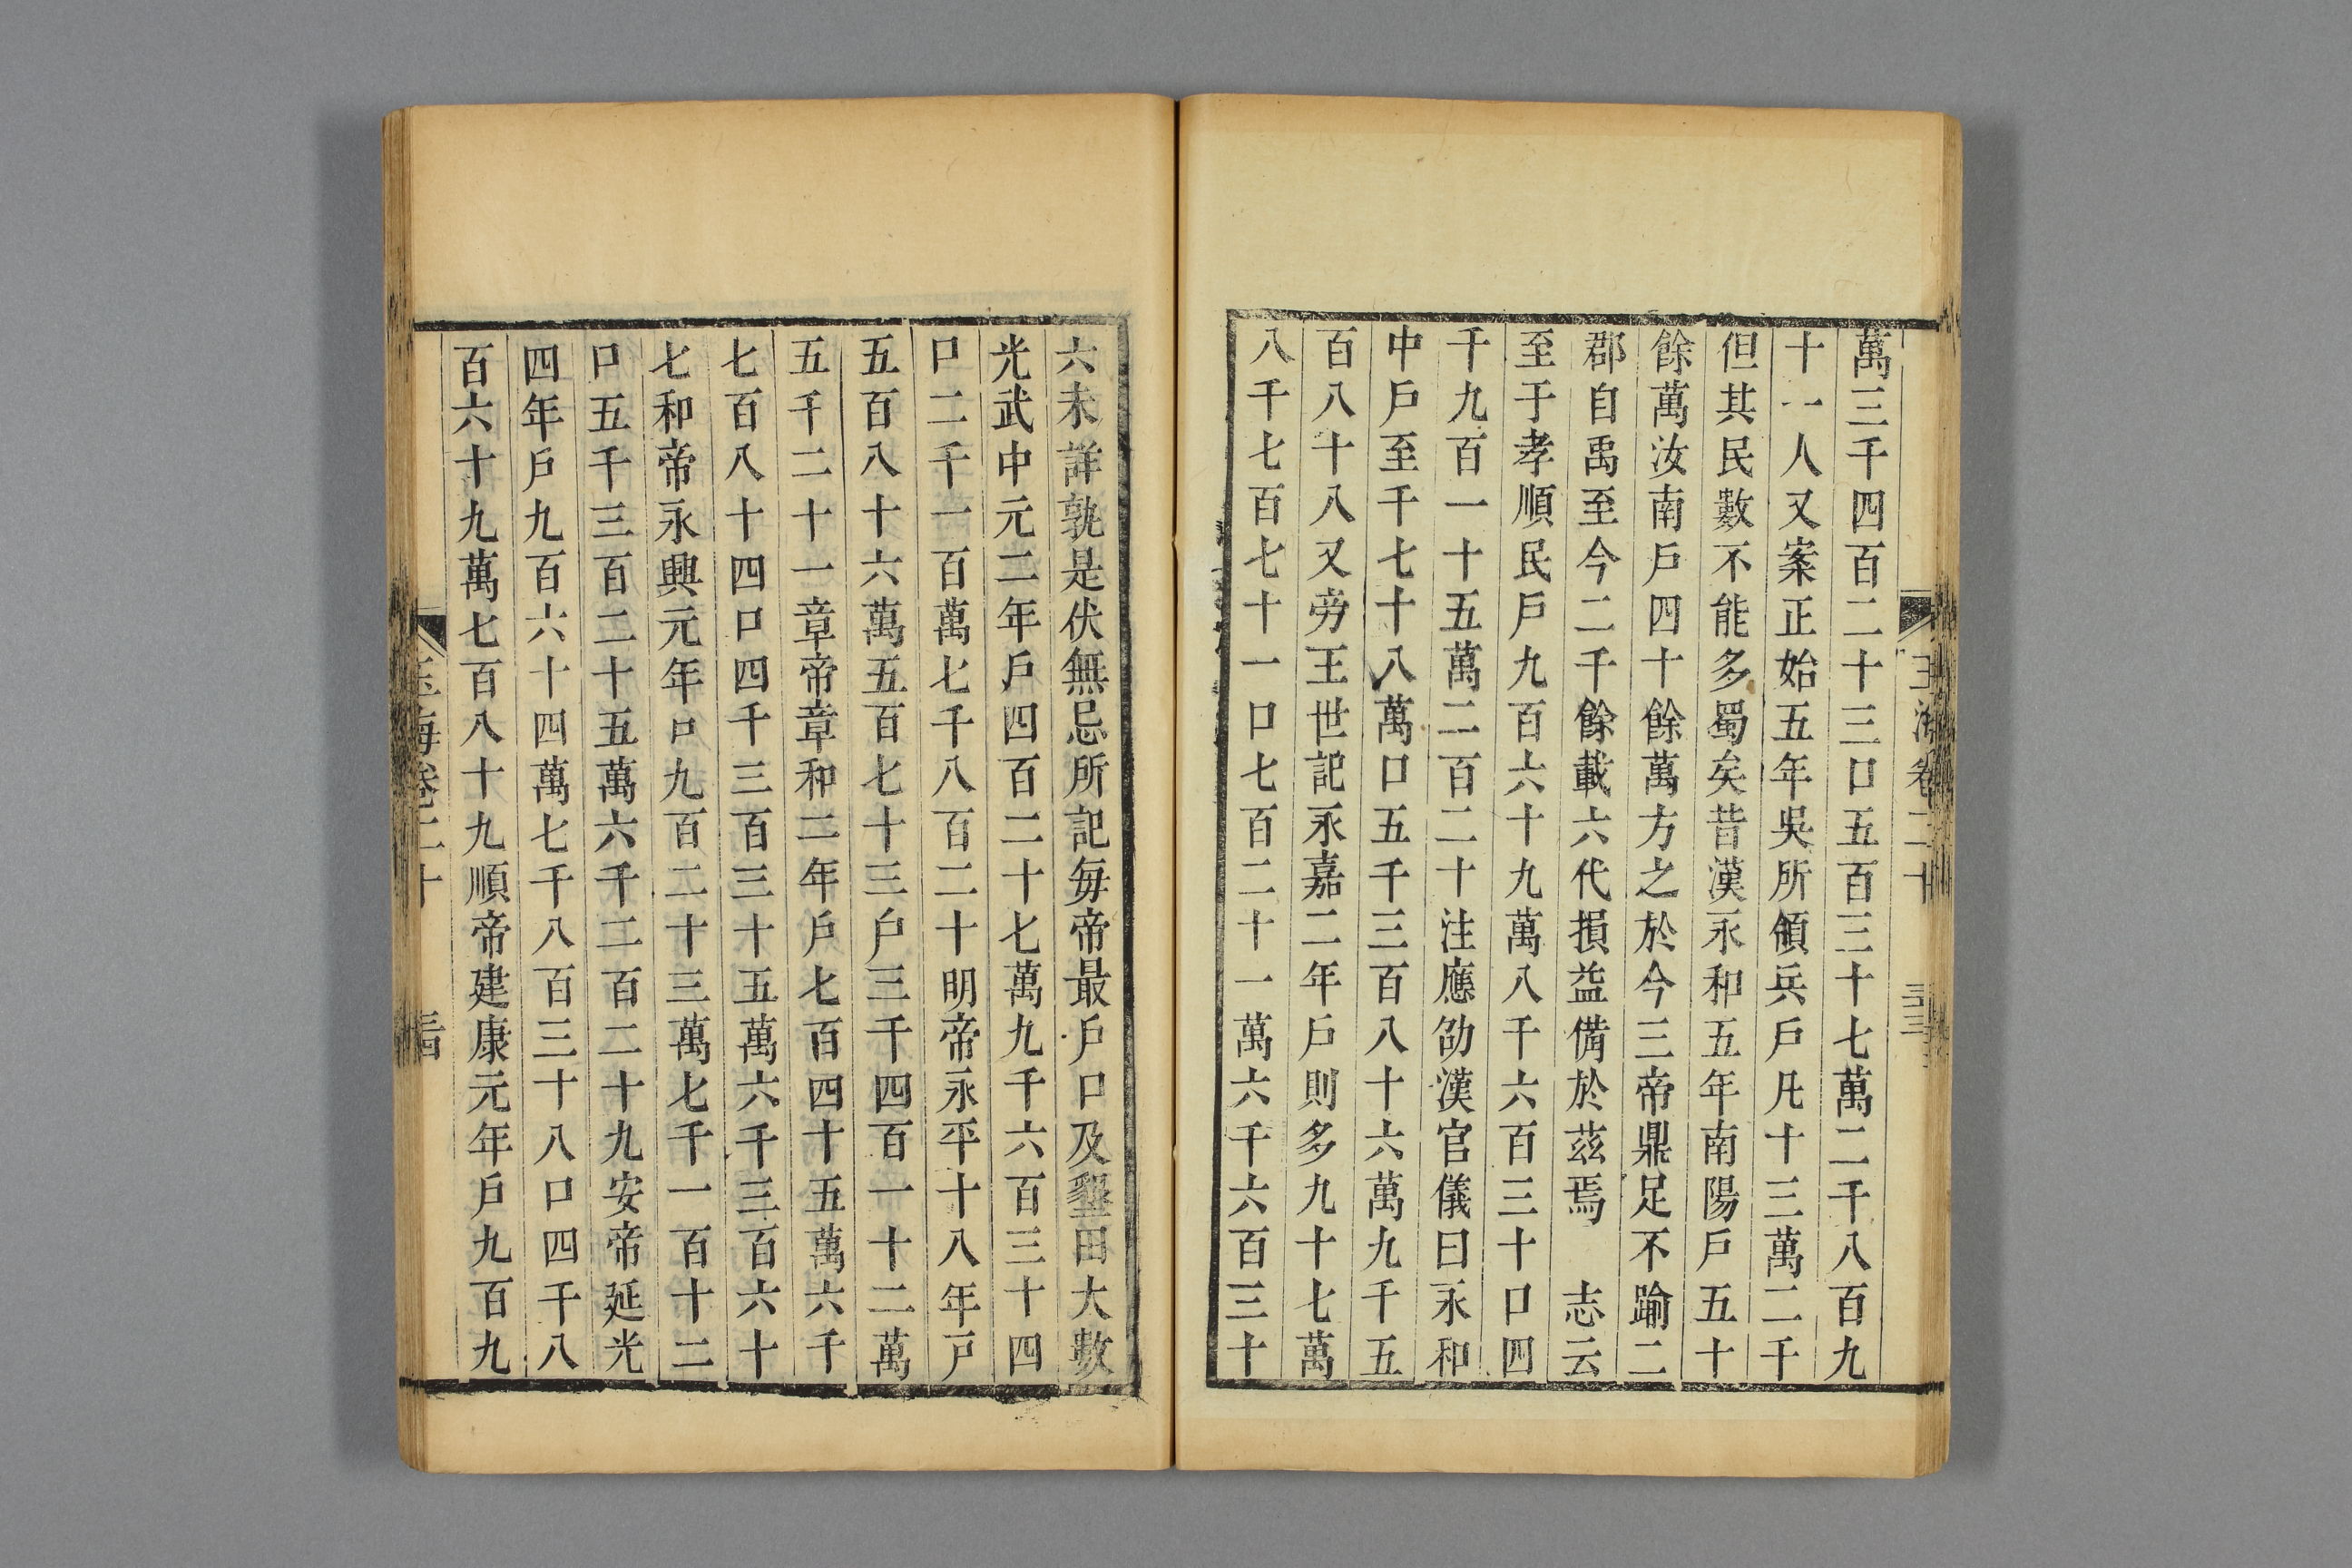 萬三千四百二十三口五百三十七萬二千八百九
十一人又案正始五年吳所領兵戶凡十三萬二千
但其民數不能多蜀矣昔漢永和五年南陽戶五十
餘萬汝南戶四十餘萬方之於今三帝鼎足不踰二
郡自禹至今二千餘載六代損益備於茲焉　志云
至于孝順民戶九百六十九萬八千六百三十口四
千九百一十五萬二百二十注應劭漢官儀曰永和
中戶至千七十八萬口五千三百八十六萬九千五
百八十八又旁王世記永嘉二年戶則多九十七萬
八千七百七十一口七百二十一萬六千六百三十
六未詳孰是伏無忌所記每帝最戶口及墾田大數
光武中元二年戶四百二十七萬九千六百三十四
口二千一百萬七千八百二十明帝永平十八年戶
五百八十六萬五百七十三戶三千四百一十二萬
五千二十一章帝章和二年戶七百四十五萬六千
七百八十四口四千三百三十五萬六千三百六十
七和帝永興元年戶九百二十三萬七千一百十二
口五千三百二十五萬六千二百二十九安帝延光
四年戶九百六十四萬七千八百三十八口四千八
百六十九萬七百八十九順帝建康元年戶九百九
玉海卷二十